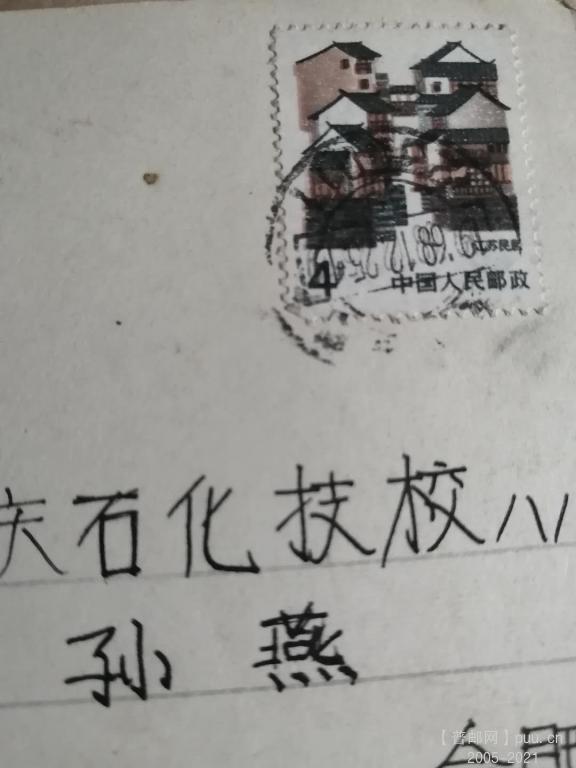 江苏民居
4
中国人民邮政
庆石化技校八八
孙燕
合肥
【普邮网】puu.cn
2005-2021